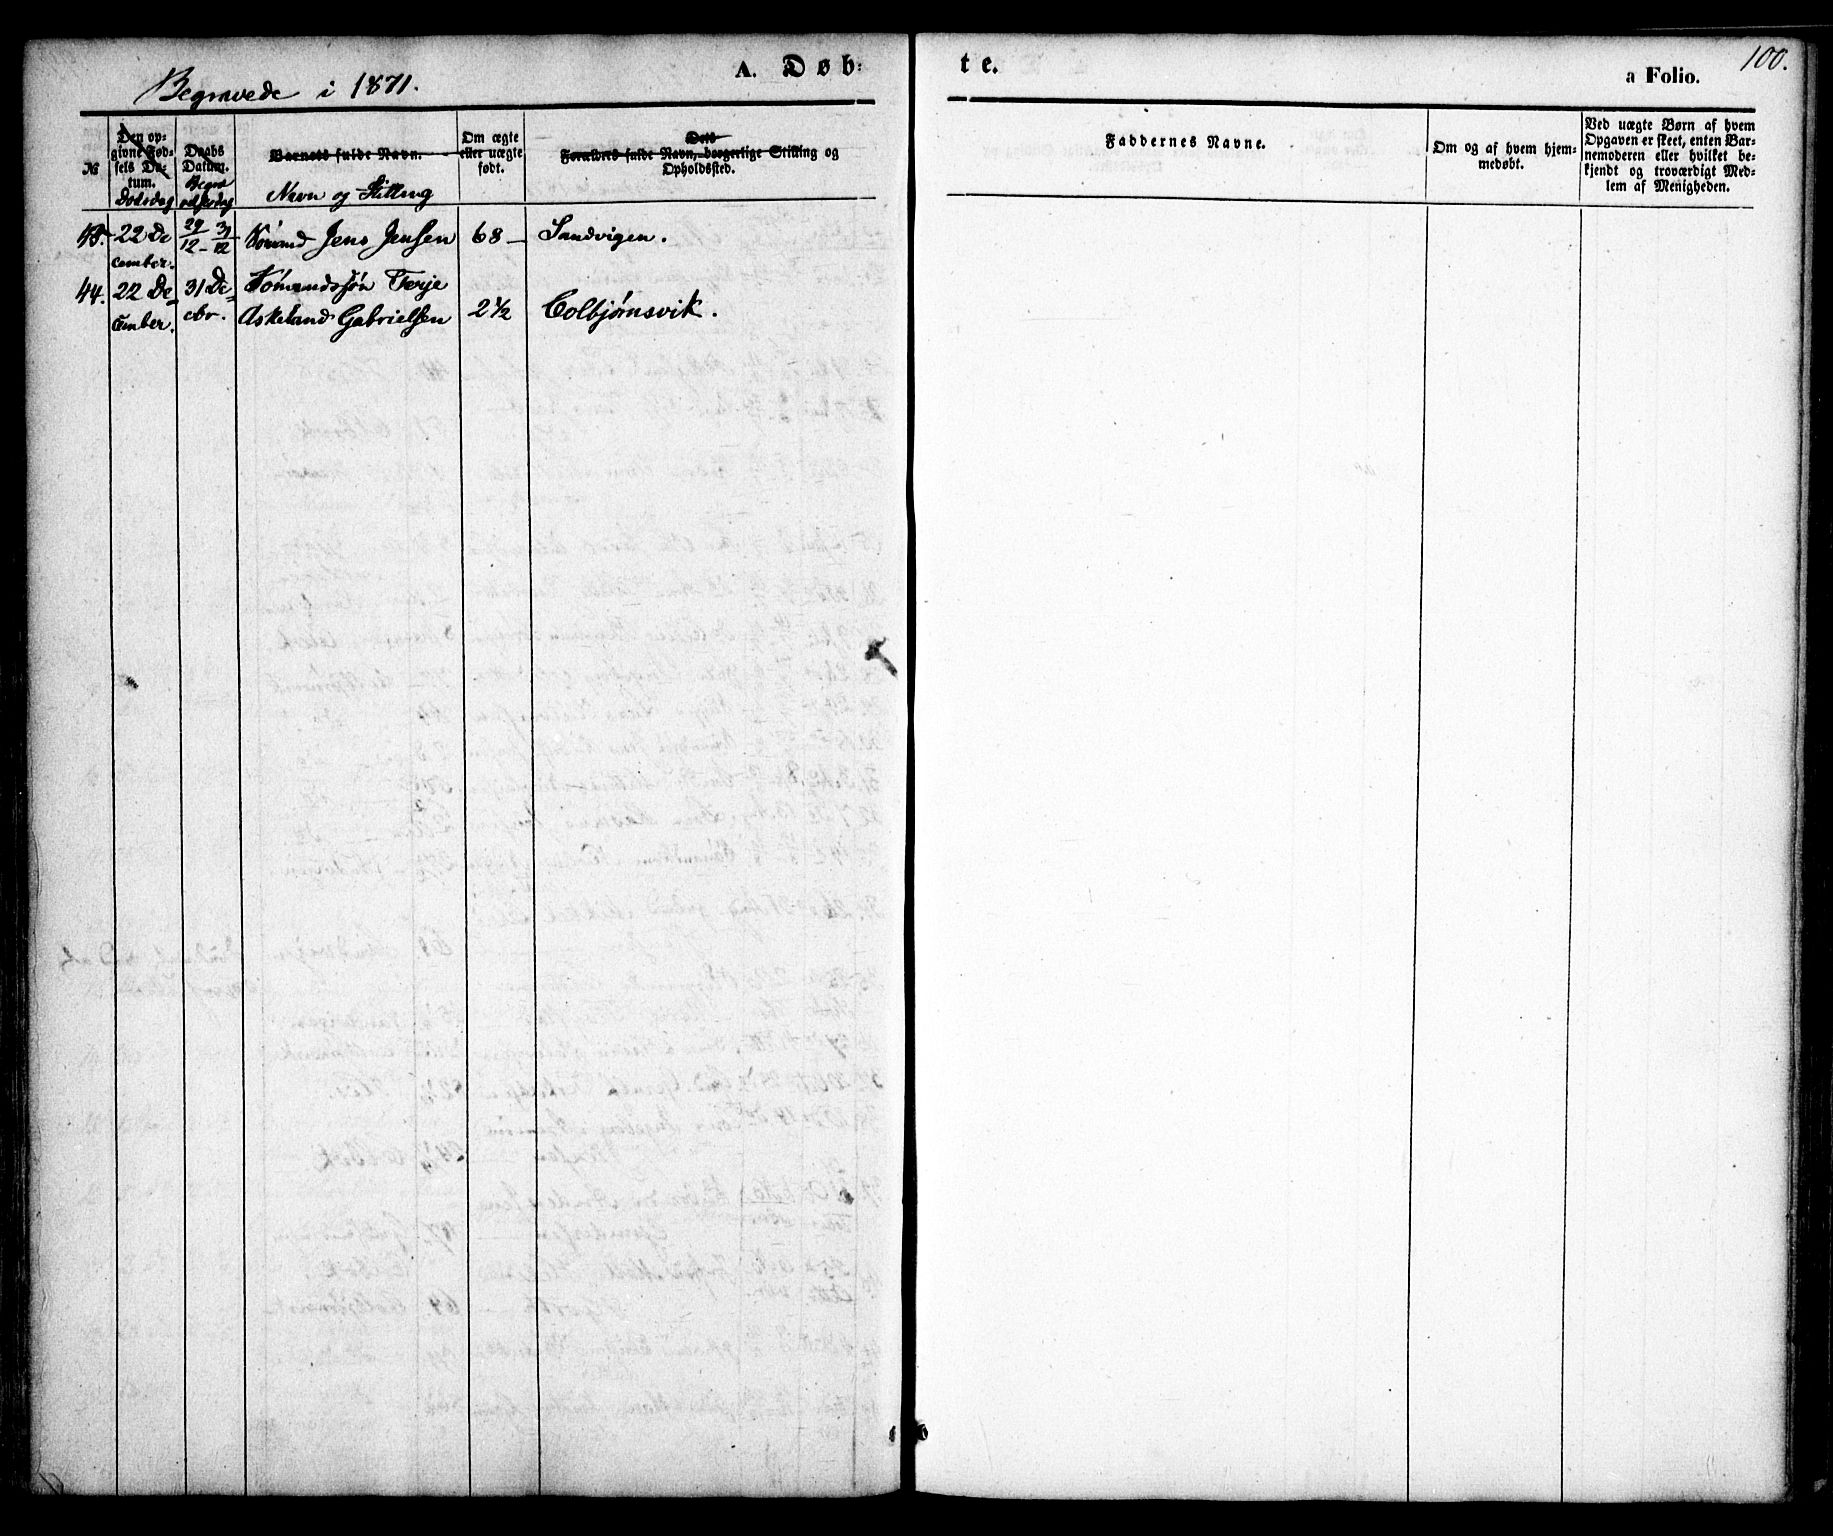 Begravede i 1871.
A. Døb-
te.
a Folio.
100.
No
Den op-
givne Fød-
sels Da-
tum.
Dødsdag
Daabs
Datum.
Begra
velsesdag
Barnets fulde Navn.
Navn og Stilling
Om ægte
eller uægte
født.
Forældres fulde Navn, borgerlige Stilling og
Opholdssted.
Faddernes Navne.
Om og af hvem hjem-
medøbt.
Ved uægte Børn af hvem
Opgaven er skeet, enten Bar-
nemoderen eller hvilket be-
kjendt og troværdigt Med-
lem af Menigheden.
22 De
cember.
29/12 - 31/12
Sømand Jens Jensen
68 -
Sandvigen.
44.
22 De-
cember.
31 De-
cbr.
Sømandssøn Terje
Askeland Gabrielsen
2 1/2
Colbjørnsvik.